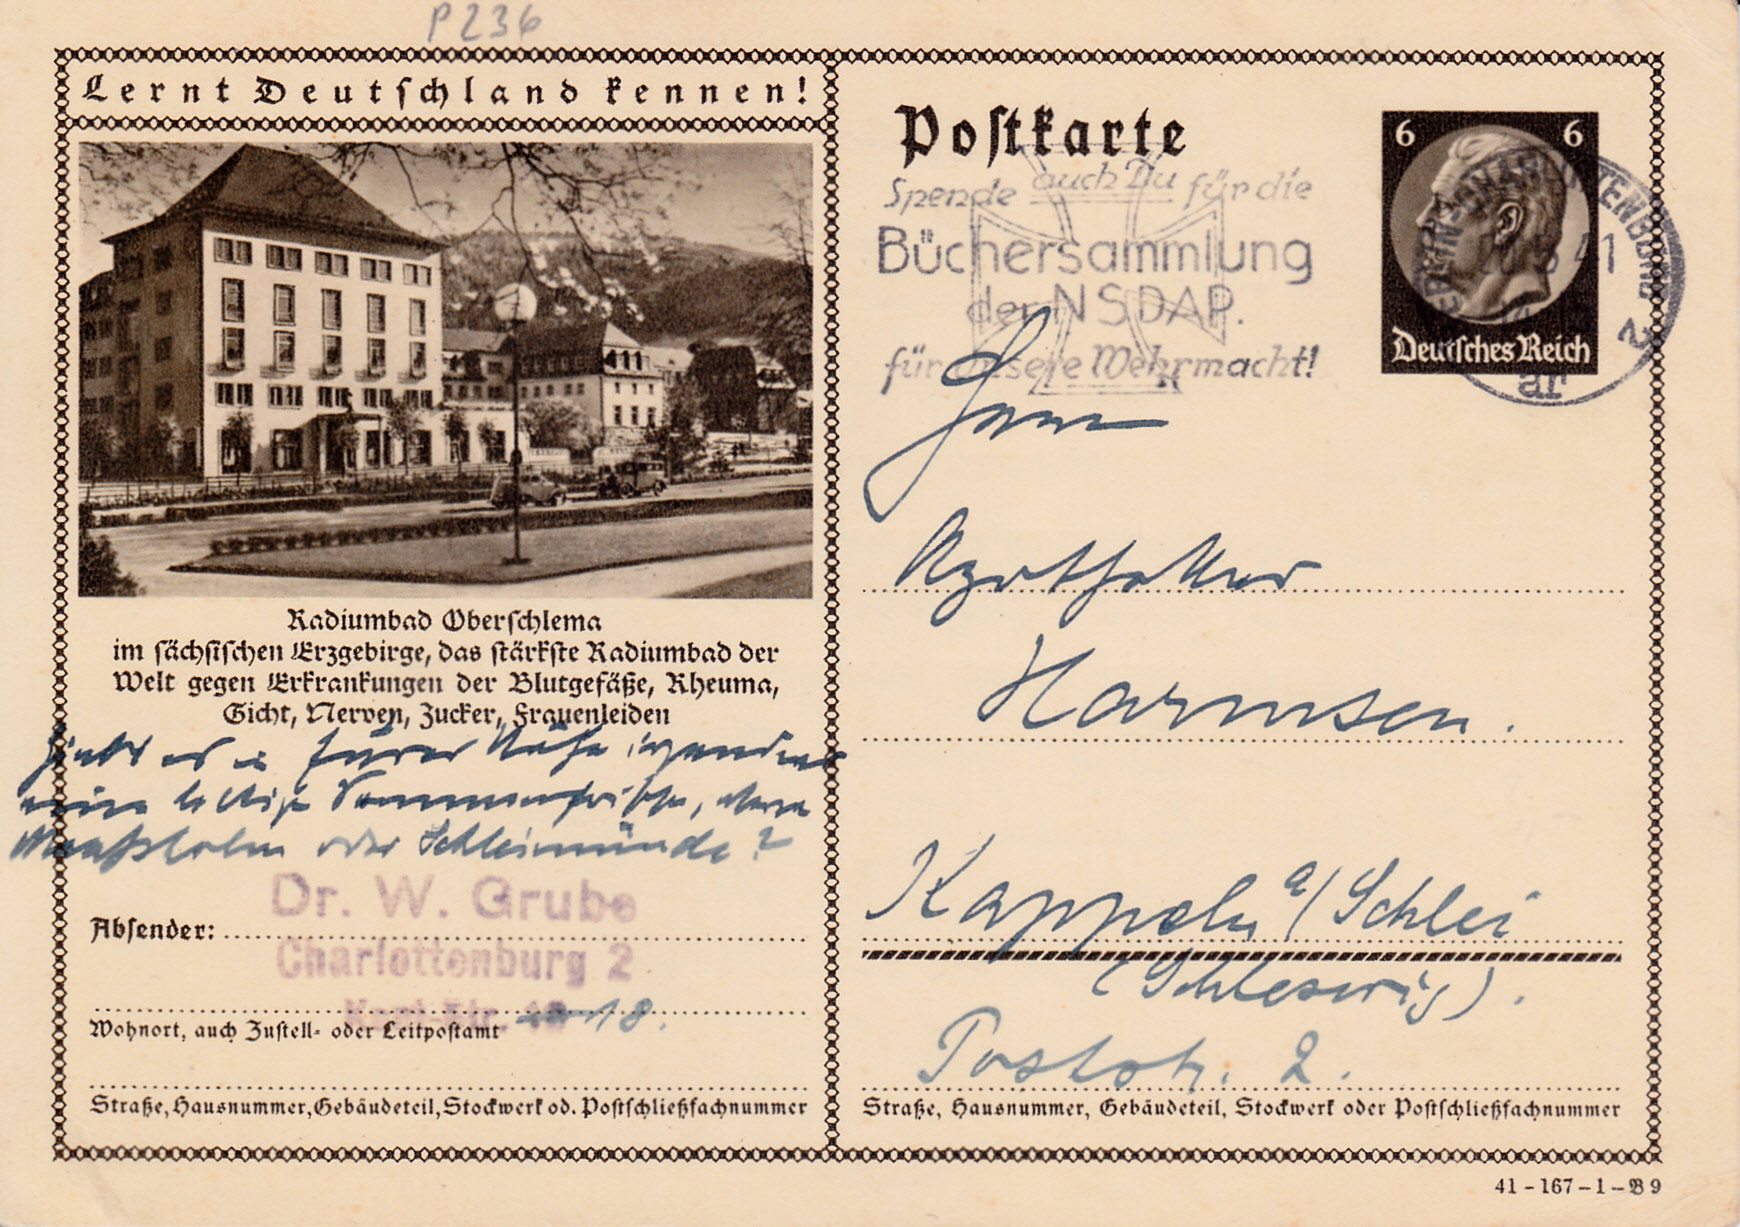 P 236
Lernt Deutschland kennen!
Radiumbad Oberschlema
im sächsischen Erzgebirge, das stärkste Radiumbad der
Welt gegen Erkrankungen der Blutgefäße, Rheuma,
Gicht, Nerven, Zucker, Frauenleiden
Giebt es in Ihrer Nähe irgendeine
Sommerfrische,
Maasholm oder Schleimünde?
Dr. W. Grube
Absender:
Charlottenburg 2
18.
Wohnort, auch Zustell- oder Leitpostamt
Straße, Hausnummer, Gebäudeteil, Stockwerk od. Postschließfachnummer
Postkarte
Spende auch Du für die
Büchersammlung
der NSDAP.
für unsere Wehrmacht!
6 6
Deutsches Reich
BERLIN-CHARLOTTENBURG 2
41
ar
Herrn
Apotheker
Harmsen.
Kappeln a/Schlei
(Schleswig).
Poststr. 2.
Straße, Hausnummer, Gebäudeteil, Stockwerk oder Postschließfachnummer
41-167-1-B9